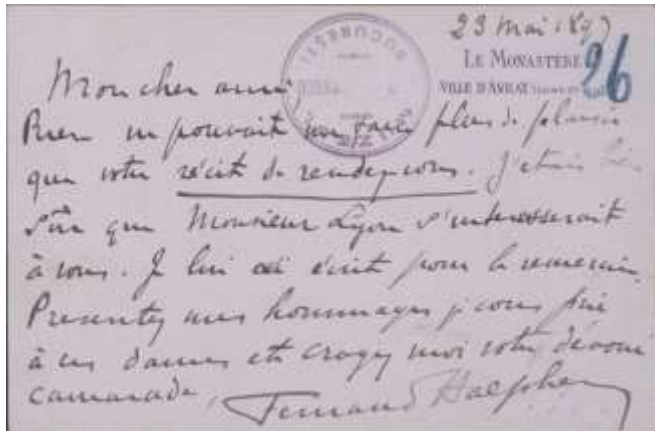 23 Mai 1897
LE MONASTERE
VILLE D'AVRAY
96
BUCUREȘTI
Mon cher ami,
Rien ne pouvait me faire plus de plaisir
que votre récit de rendez-vous. J'étais bien
sûr que Monsieur Lyon s'interesserait
à vous. Je lui ai écrit pour le remercier.
Presentez mes hommages je vous prie
à ces dames et croyez moi votre dévoué
camarade,
Fernand Halphen